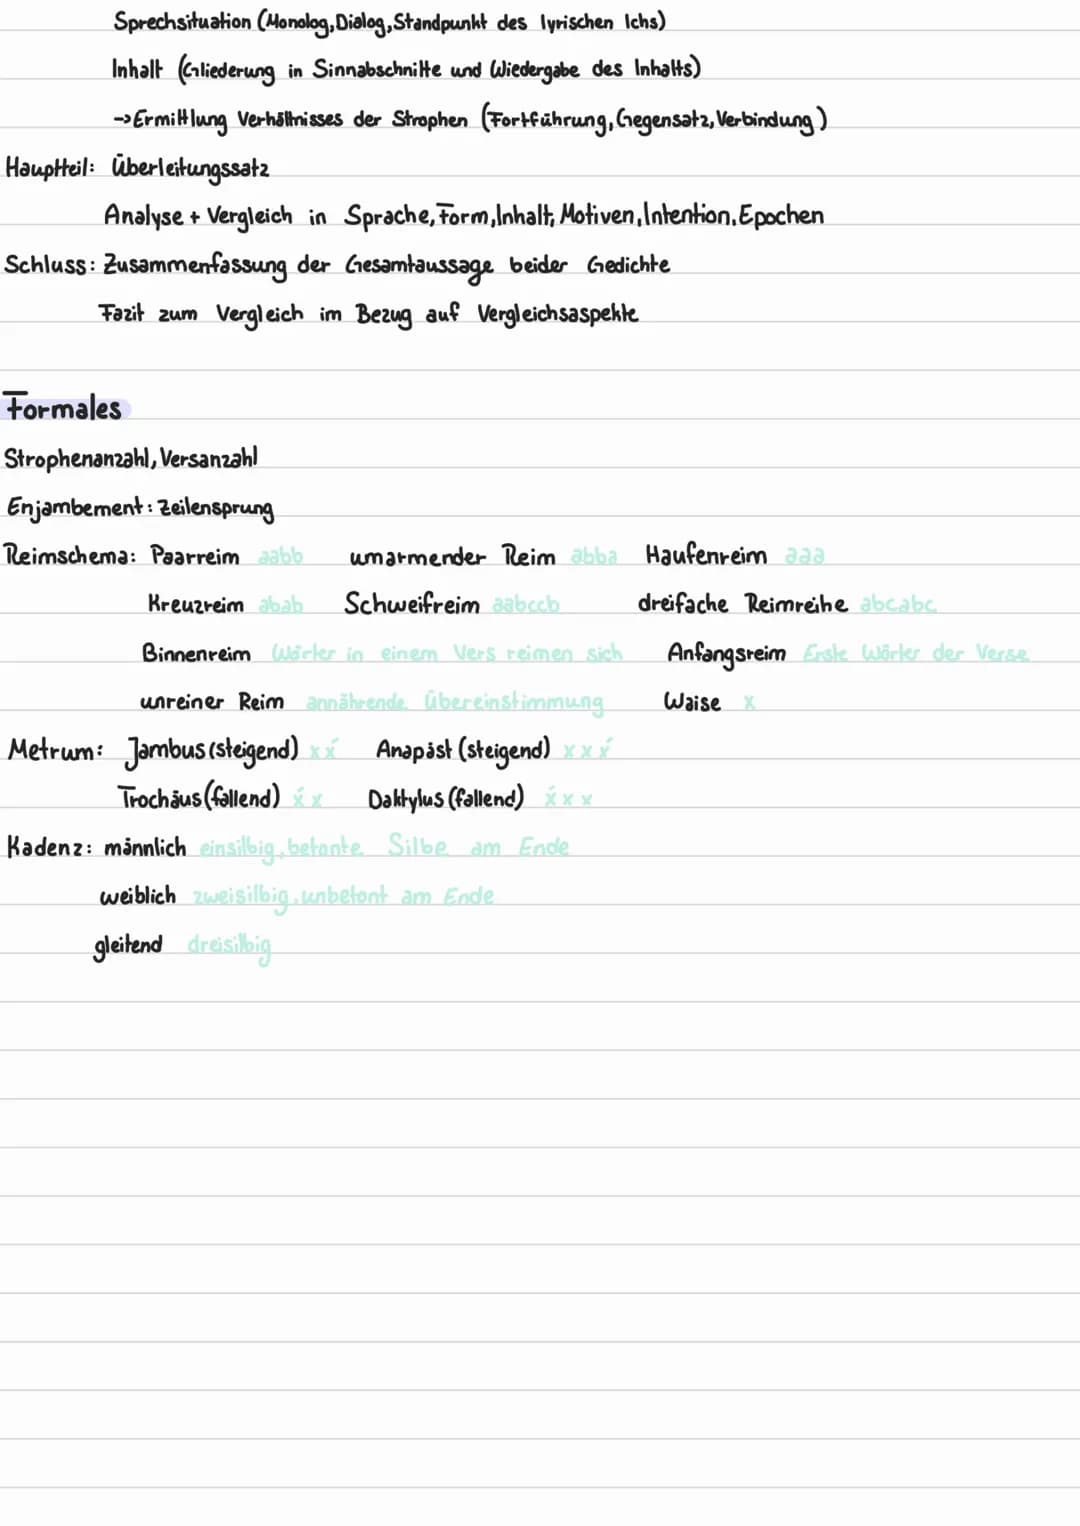 Sprechsituation (Monolog, Dialog, Standpunkt des lyrischen Ichs)
Inhalt (Gliederung in Sinnabschnitte und Wiedergabe des Inhalts)
-> Ermittlung Verhältnisses der Strophen (Fortführung, Gegensatz, Verbindung)
Hauptteil: Überleitungssatz
Analyse + Vergleich in Sprache, Form, Inhalt, Motiven, Intention, Epochen
Schluss: Zusammenfassung der Gesamtaussage beider Gedichte
Fazit zum Vergleich im Bezug auf Vergleichsaspekte
Formales
Strophenanzahl, Versanzahl
Enjambement: Zeilensprung
Reimschema: Paarreim aabb umarmender Reim abba Haufenreim aaa
Kreuzreim abab Schweifreim aabccb dreifache Reimreihe abcabc
Binnenreim Wörter in einem Vers reimen sich Anfangsreim Erste Wörter der Verse
unreiner Reim annährende Übereinstimmung Waise x
Metrum: Jambus (steigend) x x́ Anapäst (steigend) x x x́
Trochäus (fallend) x́ x Daktylus (fallend) x́ x x
Kadenz: männlich einsilbig, betonte Silbe am Ende
weiblich zweisilbig, unbetont am Ende
gleitend dreisilbig